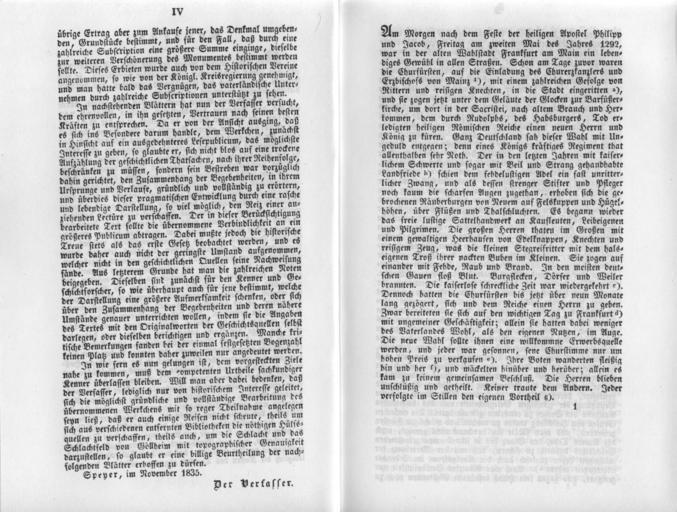 IV
übrige Ertrag aber zum Ankaufe jener, das Denkmal umgeben-
den, Grundstücke bestimmt, und für den Fall, daß durch eine
zahlreiche Subscription eine größere Summe einginge, dieselbe
zur weiteren Verschönerung des Monumentes bestimmt werden
sollte. Dieses Erbieten wurde auch von dem Historischen Vereine
angenommen, so wie von der Königl. Kreisregierung genehmigt,
und man hatte bald das Vergnügen, das vaterländische Unter-
nehmen durch zahlreiche Subscriptionen unterstützt zu sehen.
In nachstehenden Blättern hat nun der Verfasser versucht,
dem ehrenvollen, in ihn gesetzten, Vertrauen nach seinen besten
Kräften zu entsprechen. Da er von der Ansicht ausging, daß
es sich ins Besondere darum handle, dem Werkchen, zunächst
in Hinsicht auf ein ausgedehnteres Lesepublicum, das möglichste
Interesse zu geben, so glaubte er, sich nicht blos auf eine trockene
Aufzählung der geschichtlichen Thatsachen, nach ihrer Reihenfolge,
beschränken zu müssen, sondern sein Bestreben war vorzüglich
dahin gerichtet, den Zusammenhang der Begebenheiten, in ihrem
Ursprunge und Verlaufe, gründlich und vollständig zu erörtern,
und überdies dieser pragmatischen Entwicklung durch eine rasche
und lebendige Darstellung, so viel möglich, den Reiz einer an-
ziehenden Lectüre zu verschaffen. Der in dieser Berücksichtigung
bearbeitete Text sollte die übernommene Verbindlichkeit an ein
größeres Publicum abtragen. Dabei mußte jedoch die historische
Treue stets als das erste Gesetz beobachtet werden, und es
wurde daher auch nicht der geringste Umstand aufgenommen,
welcher nicht in den geschichtlichen Quellen seine Nachweisung
fände. Aus letzterem Grunde hat man die zahlreichen Noten
beigegeben. Dieselben sind zunächst für den Kenner und Ge-
schichtforscher, so wie überhaupt auch für jene bestimmt, welche
der Darstellung eine größere Aufmerksamkeit schenken, oder sich
über den Zusammenhang der Begebenheiten und deren nähere
Umstände genauer unterrichten wollen, indem sie die Angaben
des Textes mit den Originalworten der Geschichtsquellen selbst
darlegen, oder dieselben berichtigen und ergänzen. Manche kri-
tische Bemerkungen fanden bei der einmal festgesetzten Bogenzahl
keinen Platz und konnten daher zuweilen nur angedeutet werden.
In wie fern es nun gelungen ist, dem vorgesteckten Ziele
nahe zu kommen, muß dem competenten Urtheile sachkundiger
Kenner überlassen bleiben. Will man aber dabei bedenken, daß
der Verfasser, lediglich nur von historischem Interesse geleitet,
sich die möglichst gründliche und vollständige Bearbeitung des
übernommenen Werkchens mit so reger Theilnahme angelegen
seyn ließ, daß er auch einige Reisen nicht scheute, theils um
sich aus verschiedenen entfernten Bibliotheken die nöthigen Hülfs-
quellen zu verschaffen, theils auch, um die Schlacht und das
Schlachtfeld von Göllheim mit topographischer Genauigkeit
darzustellen, so glaubt er eine billige Beurtheilung der nach-
folgenden Blätter erhoffen zu dürfen.
Speyer, im November 1835.
Der Verfasser.
Am Morgen nach dem Feste der heiligen Apostel Philipp
und Jacob, Freitag am zweiten Mai des Jahres 1292,
war in der alten Wahlstadt Frankfurt am Main ein leben-
diges Gewühl in allen Straßen. Schon am Tage zuvor waren
die Churfürsten, auf die Einladung des Churerzkanzlers und
Erzbischofs von Mainz ¹), mit einem zahlreichen Gefolge von
Rittern und reisigen Knechten, in die Stadt eingeritten ²),
und sie zogen jetzt unter dem Geläute der Glocken zur Barfüßer-
kirche, um dort in der Sacristei, nach altem Brauch und Her-
kommen, dem durch Rudolphs, des Habsburgers, Tod er-
ledigten heiligen Römischen Reiche einen neuen Herrn und
König zu küren. Ganz Deutschland sah dieser Wahl mit Un-
geduld entgegen; denn eines Königs kräftiges Regiment that
allenthalben sehr Noth. Der in den letzten Jahren mit kaiser-
lichem Schwerte und sogar mit Beil und Strang gehandhabte
Landfriede b) schien dem fehdelustigen Adel ein fast unritter-
licher Zwang, und als dessen strenger Stifter und Pfleger
noch kaum die scharfen Augen zugethan, erhoben sich die ge-
brochenen Räuberburgen von Neuem auf Felskuppen und Hügel-
höhen, über Flüssen und Thalschluchten. Es begann wieder
das freie lustige Sattelhandwerk an Kaufleuten, Leibeigenen
und Pilgrimen. Die großen Herren thaten im Großen mit
einem gewaltigen Heerhaufen von Edelknappen, Knechten und
reisigem Zeug, was die kleinen Stegreifritter mit dem hals-
eigenen Troß ihrer nackten Buben im Kleinen. Sie zogen auf
einander mit Fehde, Raub und Brand. In den meisten deut-
schen Gauen floß Blut. Burgflecken, Dörfer und Weiler
brannten. Die kaiserlose schreckliche Zeit war wiedergekehrt c).
Dennoch hatten die Churfürsten bis jetzt über neun Monate
lang gezögert, sich und dem Reiche einen Herrn zu geben.
Zwar bereiteten sie sich auf den wichtigen Tag zu Frankfurt d)
mit ungemeiner Geschäftigkeit; allein sie hatten dabei weniger
des Vaterlandes Wohl, als den eigenen Nutzen, im Auge.
Die neue Wahl sollte ihnen eine willkommne Erwerbsquelle
werden, und jeder war gesonnen, seine Churstimme nur um
hohen Preis zu verkaufen e). Ihre Boten wanderten fleißig
hin und her f), und mäckelten hinüber und herüber; allein es
kam zu keinem gemeinsamen Beschluß. Die Herren blieben
unschlüssig und getheilt. Keiner traute dem Andern. Jeder
verfolgte im Stillen den eigenen Vortheil g).
1